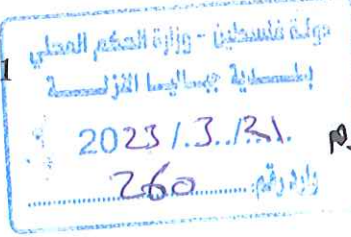 دولة فلسطين - وزارة الحكم المحلي
بلدية جباليا النزلة
2023/.3../21.
وارد رقم: 260
1